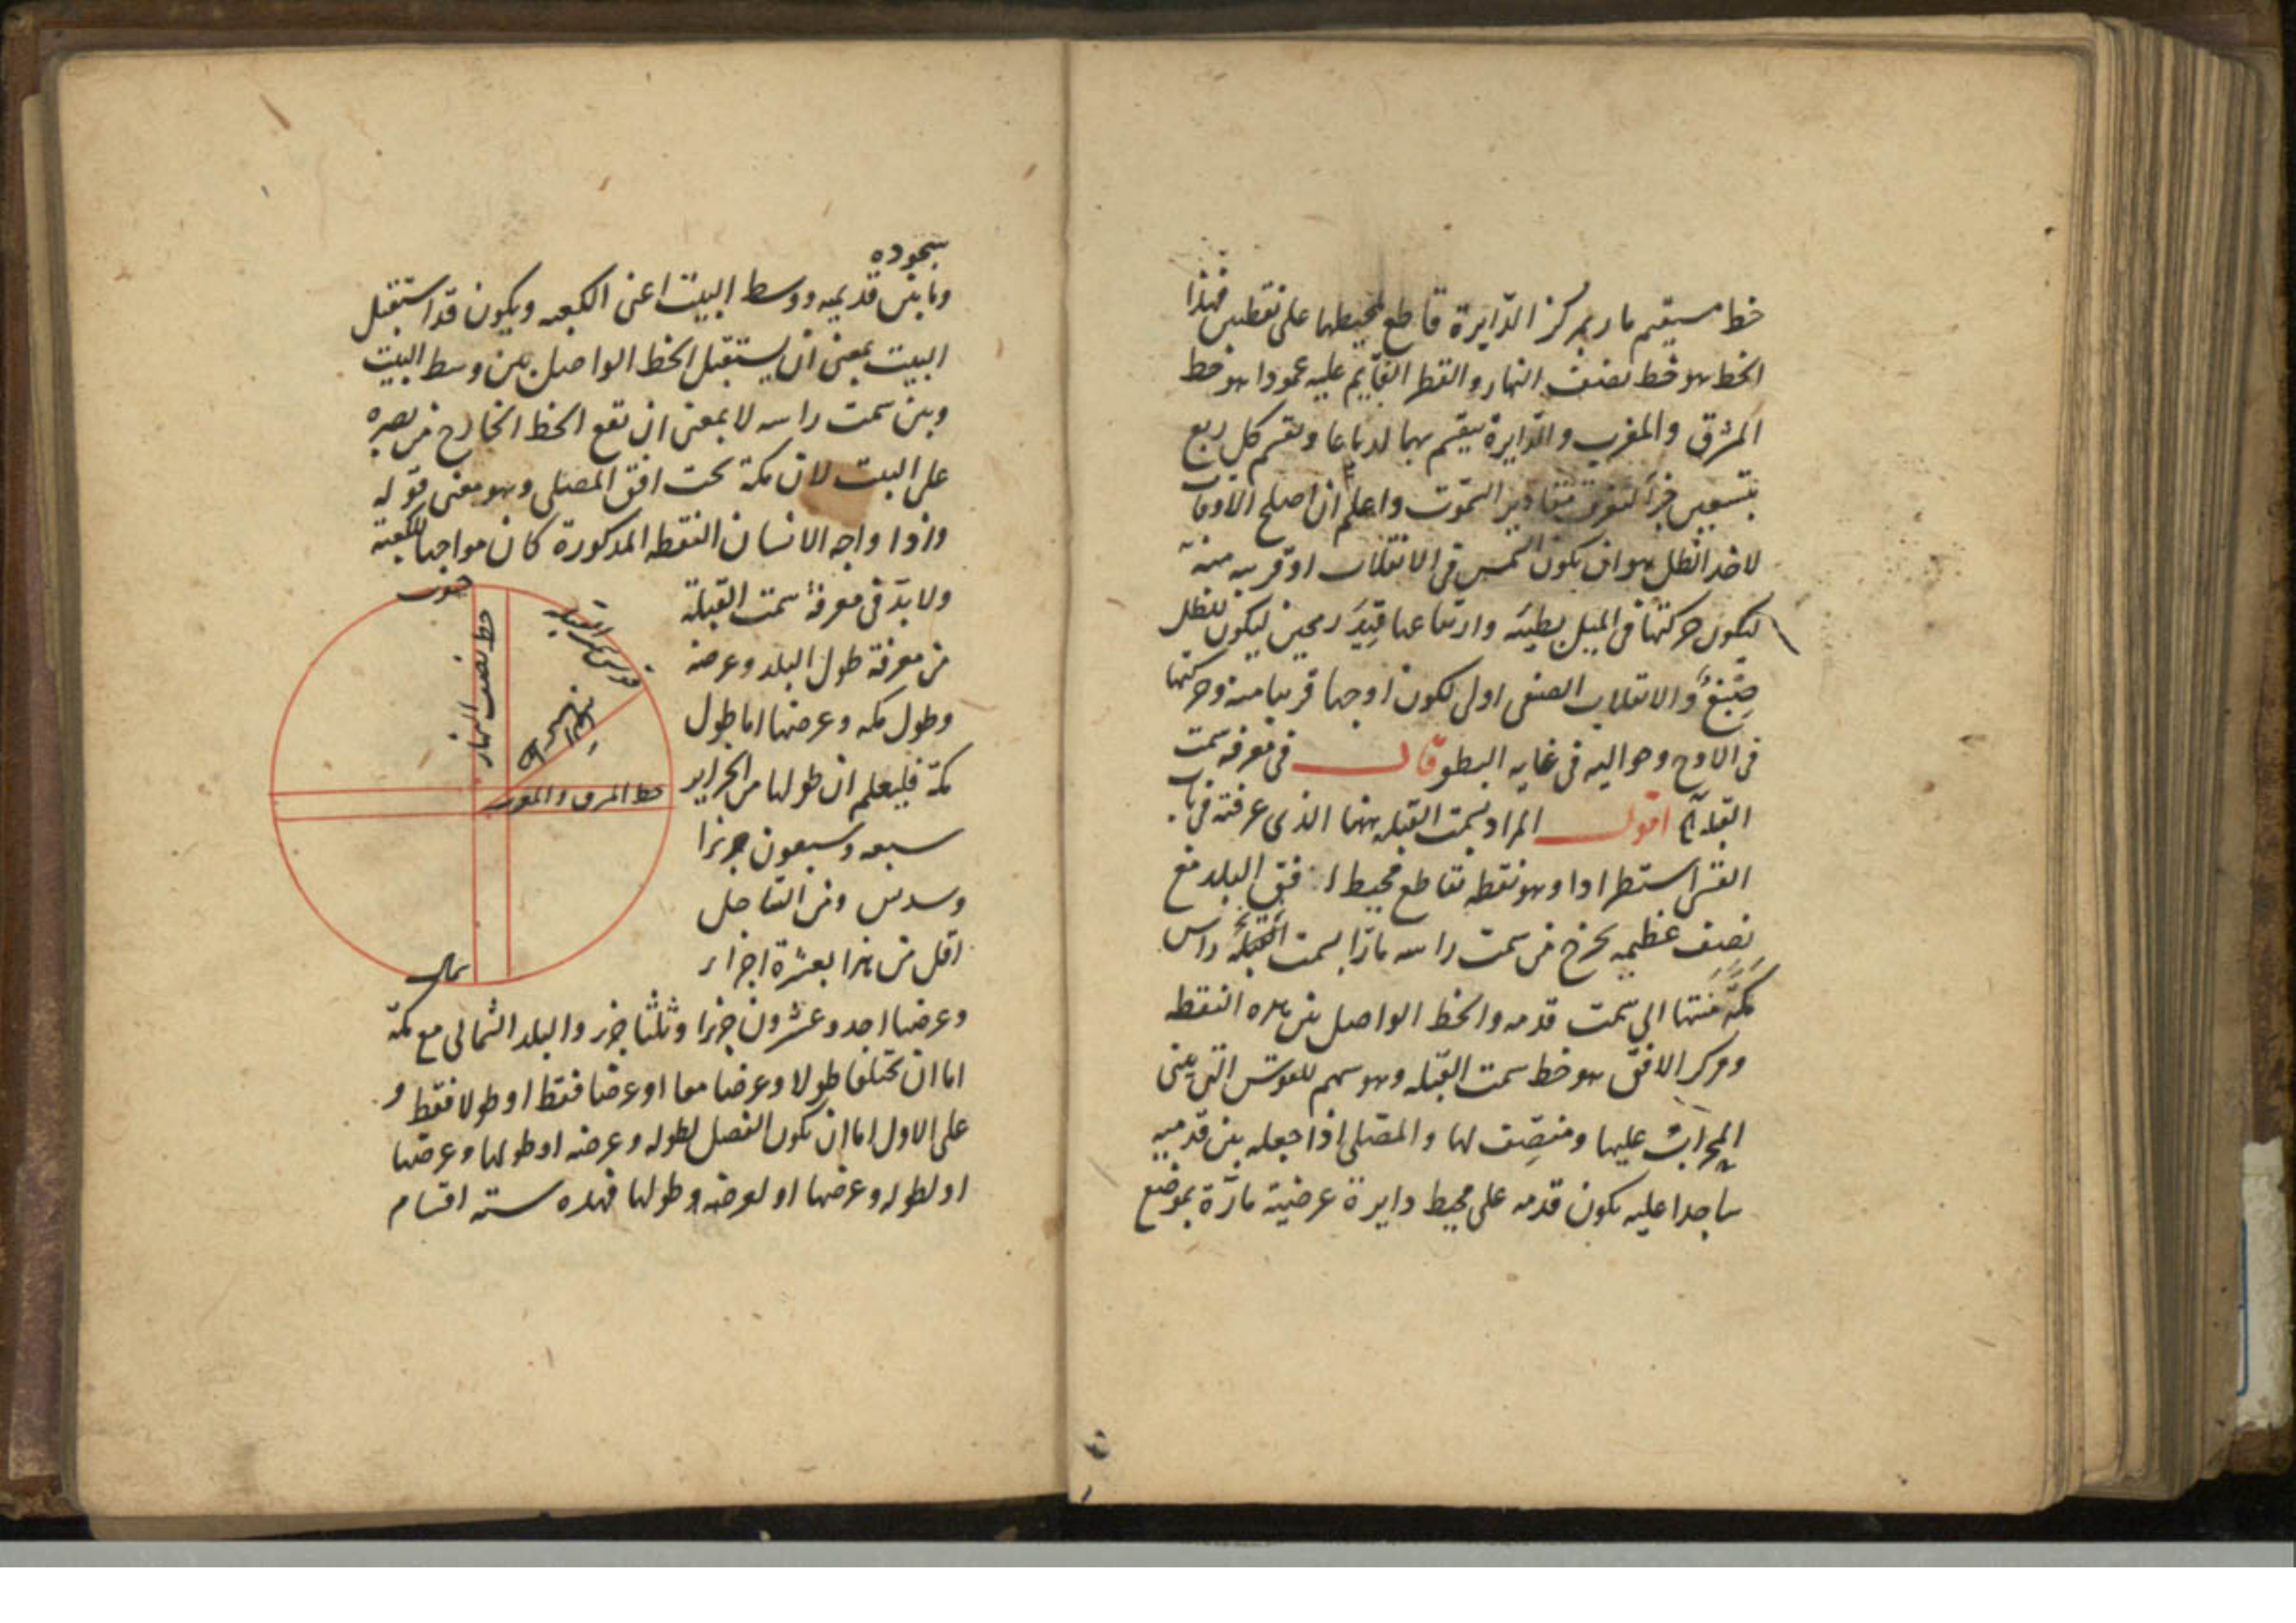 خط مستقيم مار بمركز الدّايرة قاطع لمحيطها على نقطتين فهذا
الخط هو خط نصف النهار والقطر القايم عليه عمودا هو خط
المشرق والمغرب والدّايرة ينقسم بهما ارباعا ويقسم كل ربع
بتسعين جزأ لتعرف مقادير السموت واعلم ان اصلح الاوقات
لاخذ الظل هو ان يكون الشمس فى الانقلاب او قريبه منه
ليكون حركتها فى الميل بطيئه وارتفاعها قيد رمحين ليكون للظل
والانقلاب الصيفى اولى لكون اوجها قريبا منه وحركتها
فى الاوج وحواليه فى غايه البطو قال فى معرفه سمت
القبلة اقول المراد بسمت القبله ههنا الذى عرفته فى باب
القسى استطرادا وهو نقطه تقاطع محيط افق البلد مع
نصف عظيمه يخرج من سمت راسه مارّا بسمت القبلة راس
مكّة منتها الى سمت قدمه والخط الواصل بين هذه النقطه
ومركز الافق هو خط سمت القبله وهو سهم للقوس التى يبنى
المحراب عليها ومنصّف لها والمصلى اذا جعله بين قدميه
ساجدا عليه يكون قدمه على محيط دايرة عرضية مارّة بموضع
سجوده
وما بين قدميه ووسط البيت اعنى الكعبه ويكون قد استقبل
البيت بمعنى ان يستقبل الخط الواصل بين وسط البيت
وبين سمت راسه لا بمعنى ان تقع الخط الخارج من بصره
على البيت لان مكة تحت افق المصلى وهو معنى قوله
واذا واجه الانسان النقطه المذكورة كان مواجها للكعبة
ولا بدّ فى معرفة سمت القبلة
من معرفة طول البلد وعرضه
وطول مكه وعرضها اما طول
مكّة فليعلم ان طولها من الجزاير
سبعه وسبعون جزءا
وسدس ومن الساحل
اقل من هذا بعشرة اجزاء
وعرضها احد وعشرون جزءا وثلثا جزء والبلد الشمالى مع مكّة
اما ان تختلفا طولا وعرضا معا او عرضا فقط او طولا فقط و
على الاول اما ان يكون الفضل لطوله وعرضه او طولها وعرضها
او لطوله وعرضها او لعرضه وطولها فهذه سته اقسام
جنوب
خط نصف النهار
خط المشرق والمغرب
شمال